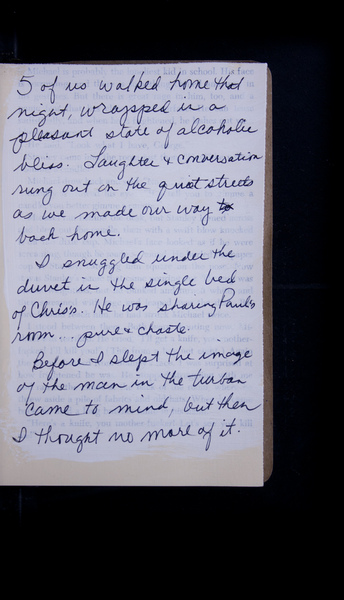 5 of us walked home that
night, wrapped in a
pleasant state of alcoholic
bliss. Laughter & conversation
rung out in the quiet streets
as we made our way to
back home.
I snuggled under the
duvet in the single bed
of Chris's. He was sharing Paul's
room... pure & chaste.
Before I slept the image
of the man in the turban
came to mind, but then
I thought no more of it.